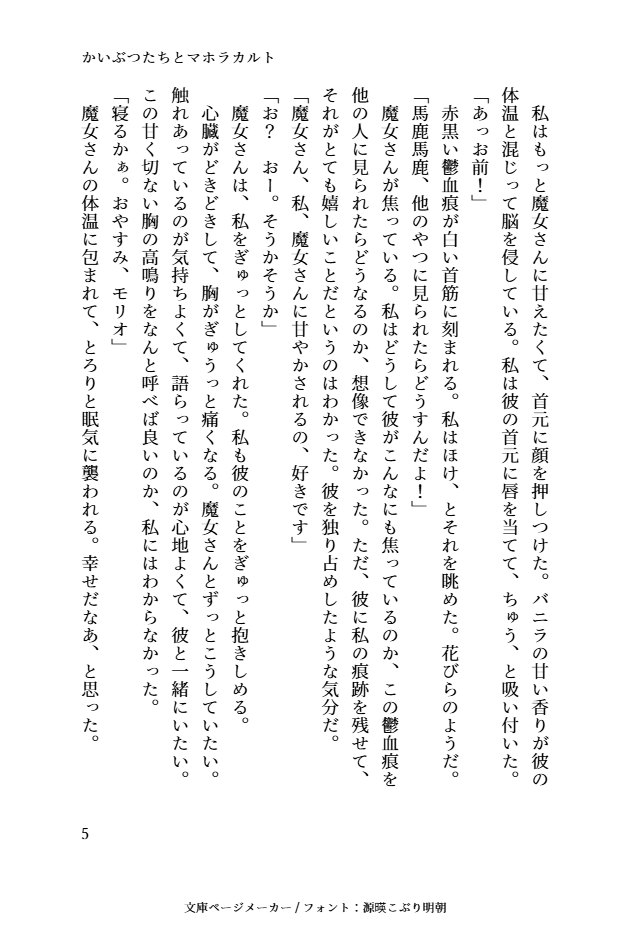 かいぶつたちとマホラカルト
　私はもっと魔女さんに甘えたくて、首元に顔を押しつけた。バニラの甘い香りが彼の
体温と混じって脳を侵している。私は彼の首元に唇を当てて、ちゅう、と吸い付いた。
「あっお前！」
　赤黒い鬱血痕が白い首筋に刻まれる。私はほけ、とそれを眺めた。花びらのようだ。
「馬鹿馬鹿、他のやつに見られたらどうすんだよ！」
　魔女さんが焦っている。私はどうして彼がこんなにも焦っているのか、この鬱血痕を
他の人に見られたらどうなるのか、想像できなかった。ただ、彼に私の痕跡を残せて、
それがとても嬉しいことだというのはわかった。彼を独り占めしたような気分だ。
「魔女さん、私、魔女さんに甘やかされるの、好きです」
「お？　おー。そうかそうか」
　魔女さんは、私をぎゅっとしてくれた。私も彼のことをぎゅっと抱きしめる。
　心臓がどきどきして、胸がぎゅうっと痛くなる。魔女さんとずっとこうしていたい。
触れあっているのが気持ちよくて、語らっているのが心地よくて、彼と一緒にいたい。
この甘く切ない胸の高鳴りをなんと呼べば良いのか、私にはわからなかった。
「寝るかぁ。おやすみ、モリオ」
　魔女さんの体温に包まれて、とろりと眠気に襲われる。幸せだなあ、と思った。
5
文庫ページメーカー / フォント：源暎こぶり明朝